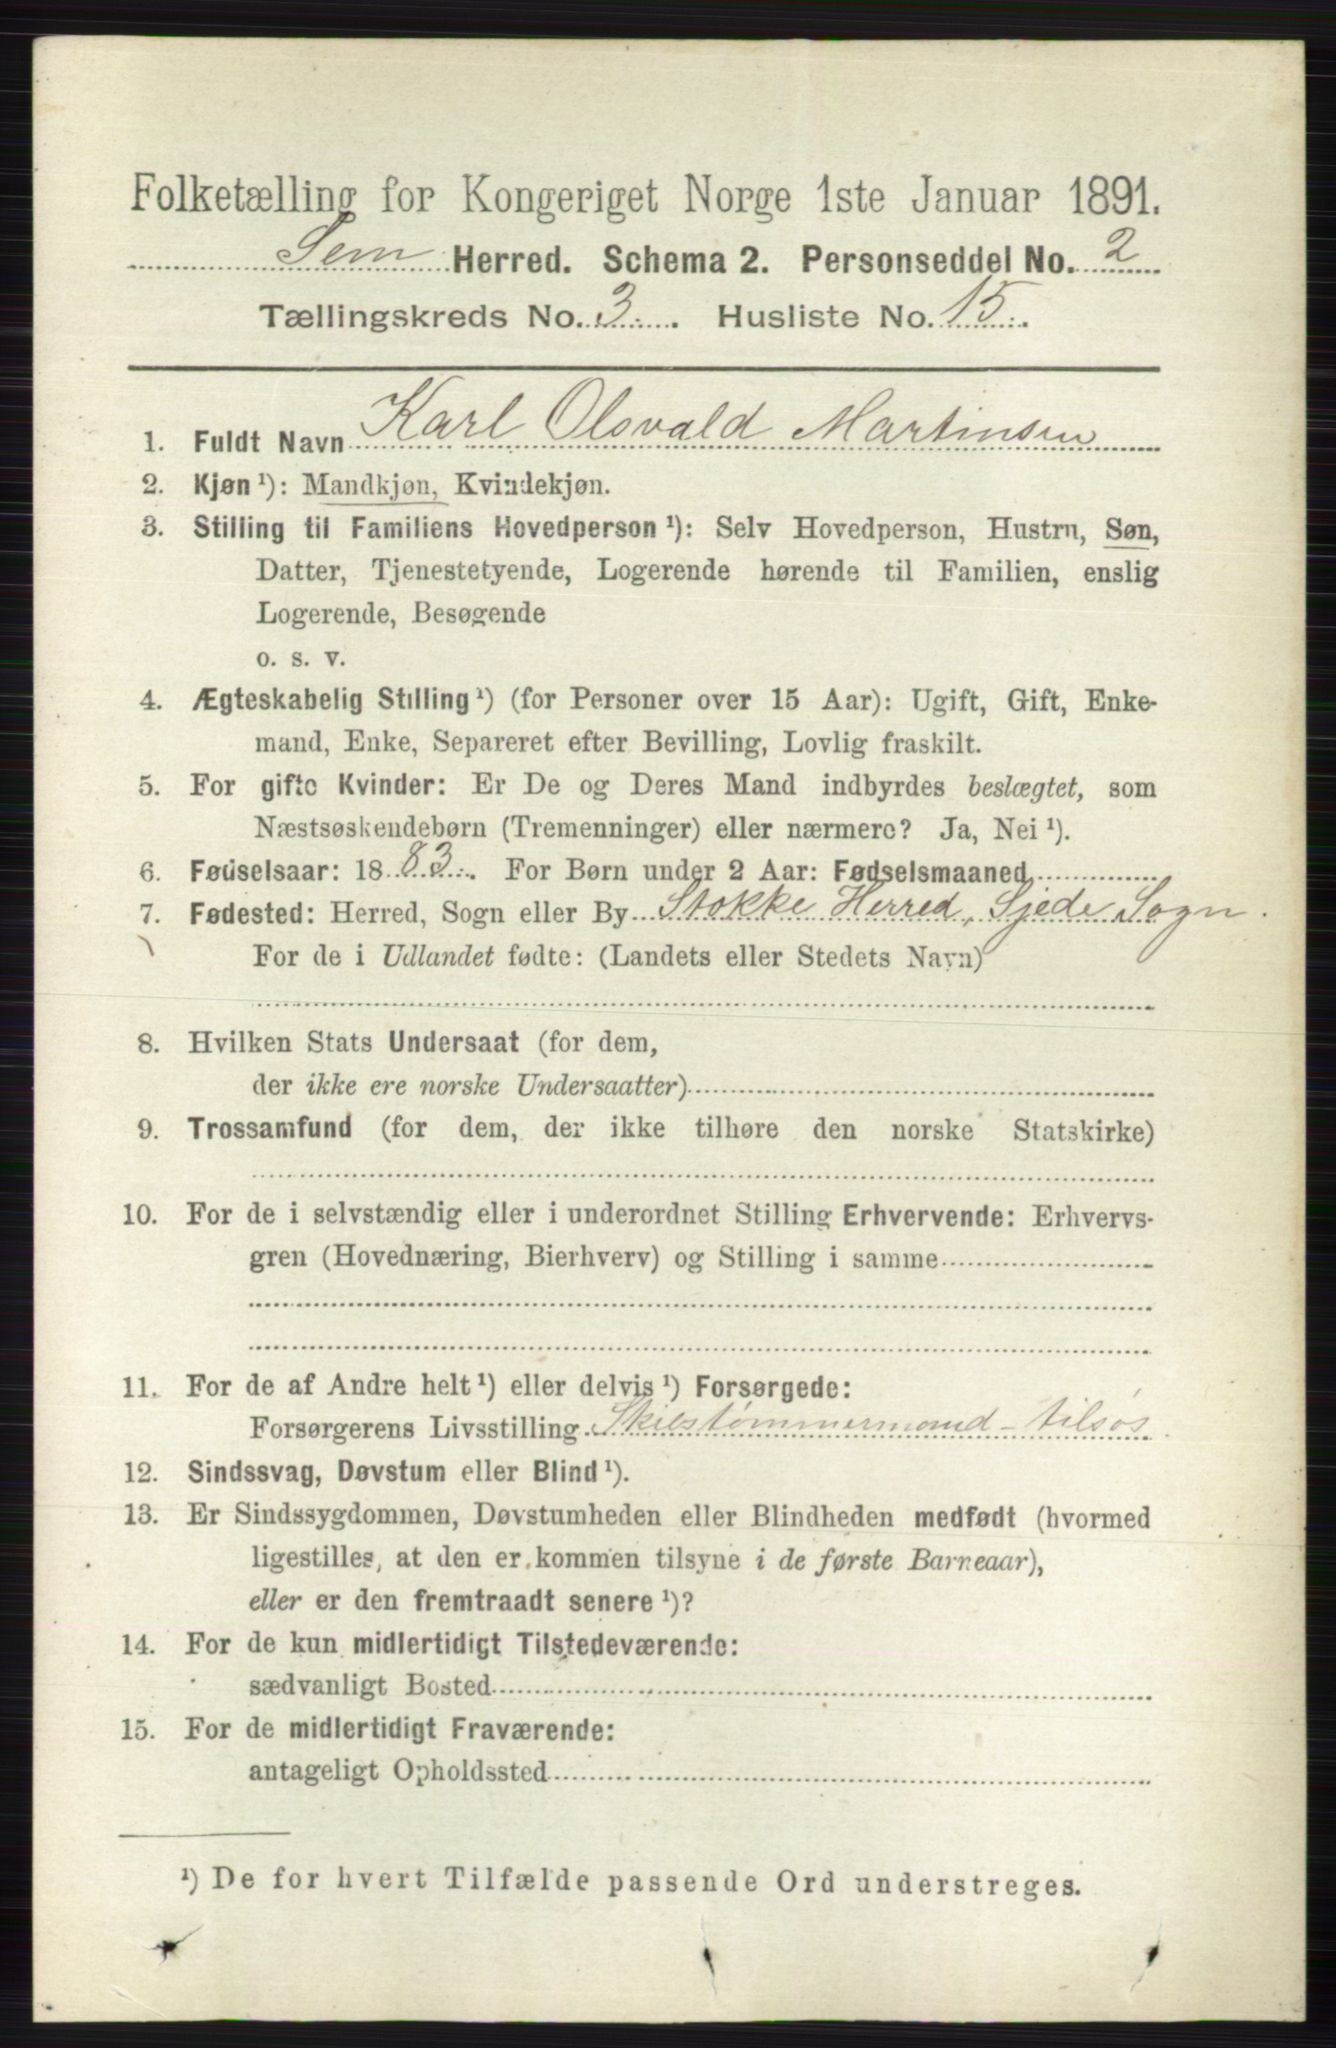 Folketælling for Kongeriget Norge 1ste Januar 1891.
Sem Herred. Schema 2. Personseddel No. 2
Tællingskreds No. 3. Husliste No. 15.
1. Fuldt Navn Karl Olsvald Martinsen
2. Kjøn ¹): Mandkjøn, Kvindekjøn.
3. Stilling til Familiens Hovedperson ¹): Selv Hovedperson, Hustru, Søn,
Datter, Tjenestetyende, Logerende hørende til Familien, enslig
Logerende, Besøgende
o. s. v.
4. Ægteskabelig Stilling ¹) (for Personer over 15 Aar): Ugift, Gift, Enke-
mand, Enke, Separeret efter Bevilling, Lovlig fraskilt.
5. For gifte Kvinder: Er De og Deres Mand indbyrdes beslægtet, som
Næstsøskendebørn (Tremenninger) eller nærmere? Ja, Nei ¹).
6. Fødselsaar: 1883. For Børn under 2 Aar: Fødselsmaaned
7. Fødested: Herred, Sogn eller By Stokke Herred, Sjede Sogn.
For de i Udlandet fødte: (Landets eller Stedets Navn)
8. Hvilken Stats Undersaat (for dem,
der ikke ere norske Undersaatter)
9. Trossamfund (for dem, der ikke tilhøre den norske Statskirke)
10. For de i selvstændig eller i underordnet Stilling Erhvervende: Erhvervs-
gren (Hovednæring, Bierhverv) og Stilling i samme
11. For de af Andre helt ¹) eller delvis ¹) Forsørgede:
Forsørgerens Livsstilling Skibstømmermand - tilsøs
12. Sindssvag, Døvstum eller Blind ¹).
13. Er Sindssygdommen, Døvstumheden eller Blindheden medfødt (hvormed
ligestilles, at den er kommen tilsyne i de første Barneaar),
eller er den fremtraadt senere ¹)?
14. For de kun midlertidigt Tilstedeværende:
sædvanligt Bosted
15. For de midlertidigt Fraværende:
antageligt Opholdssted
¹) De for hvert Tilfælde passende Ord understreges.